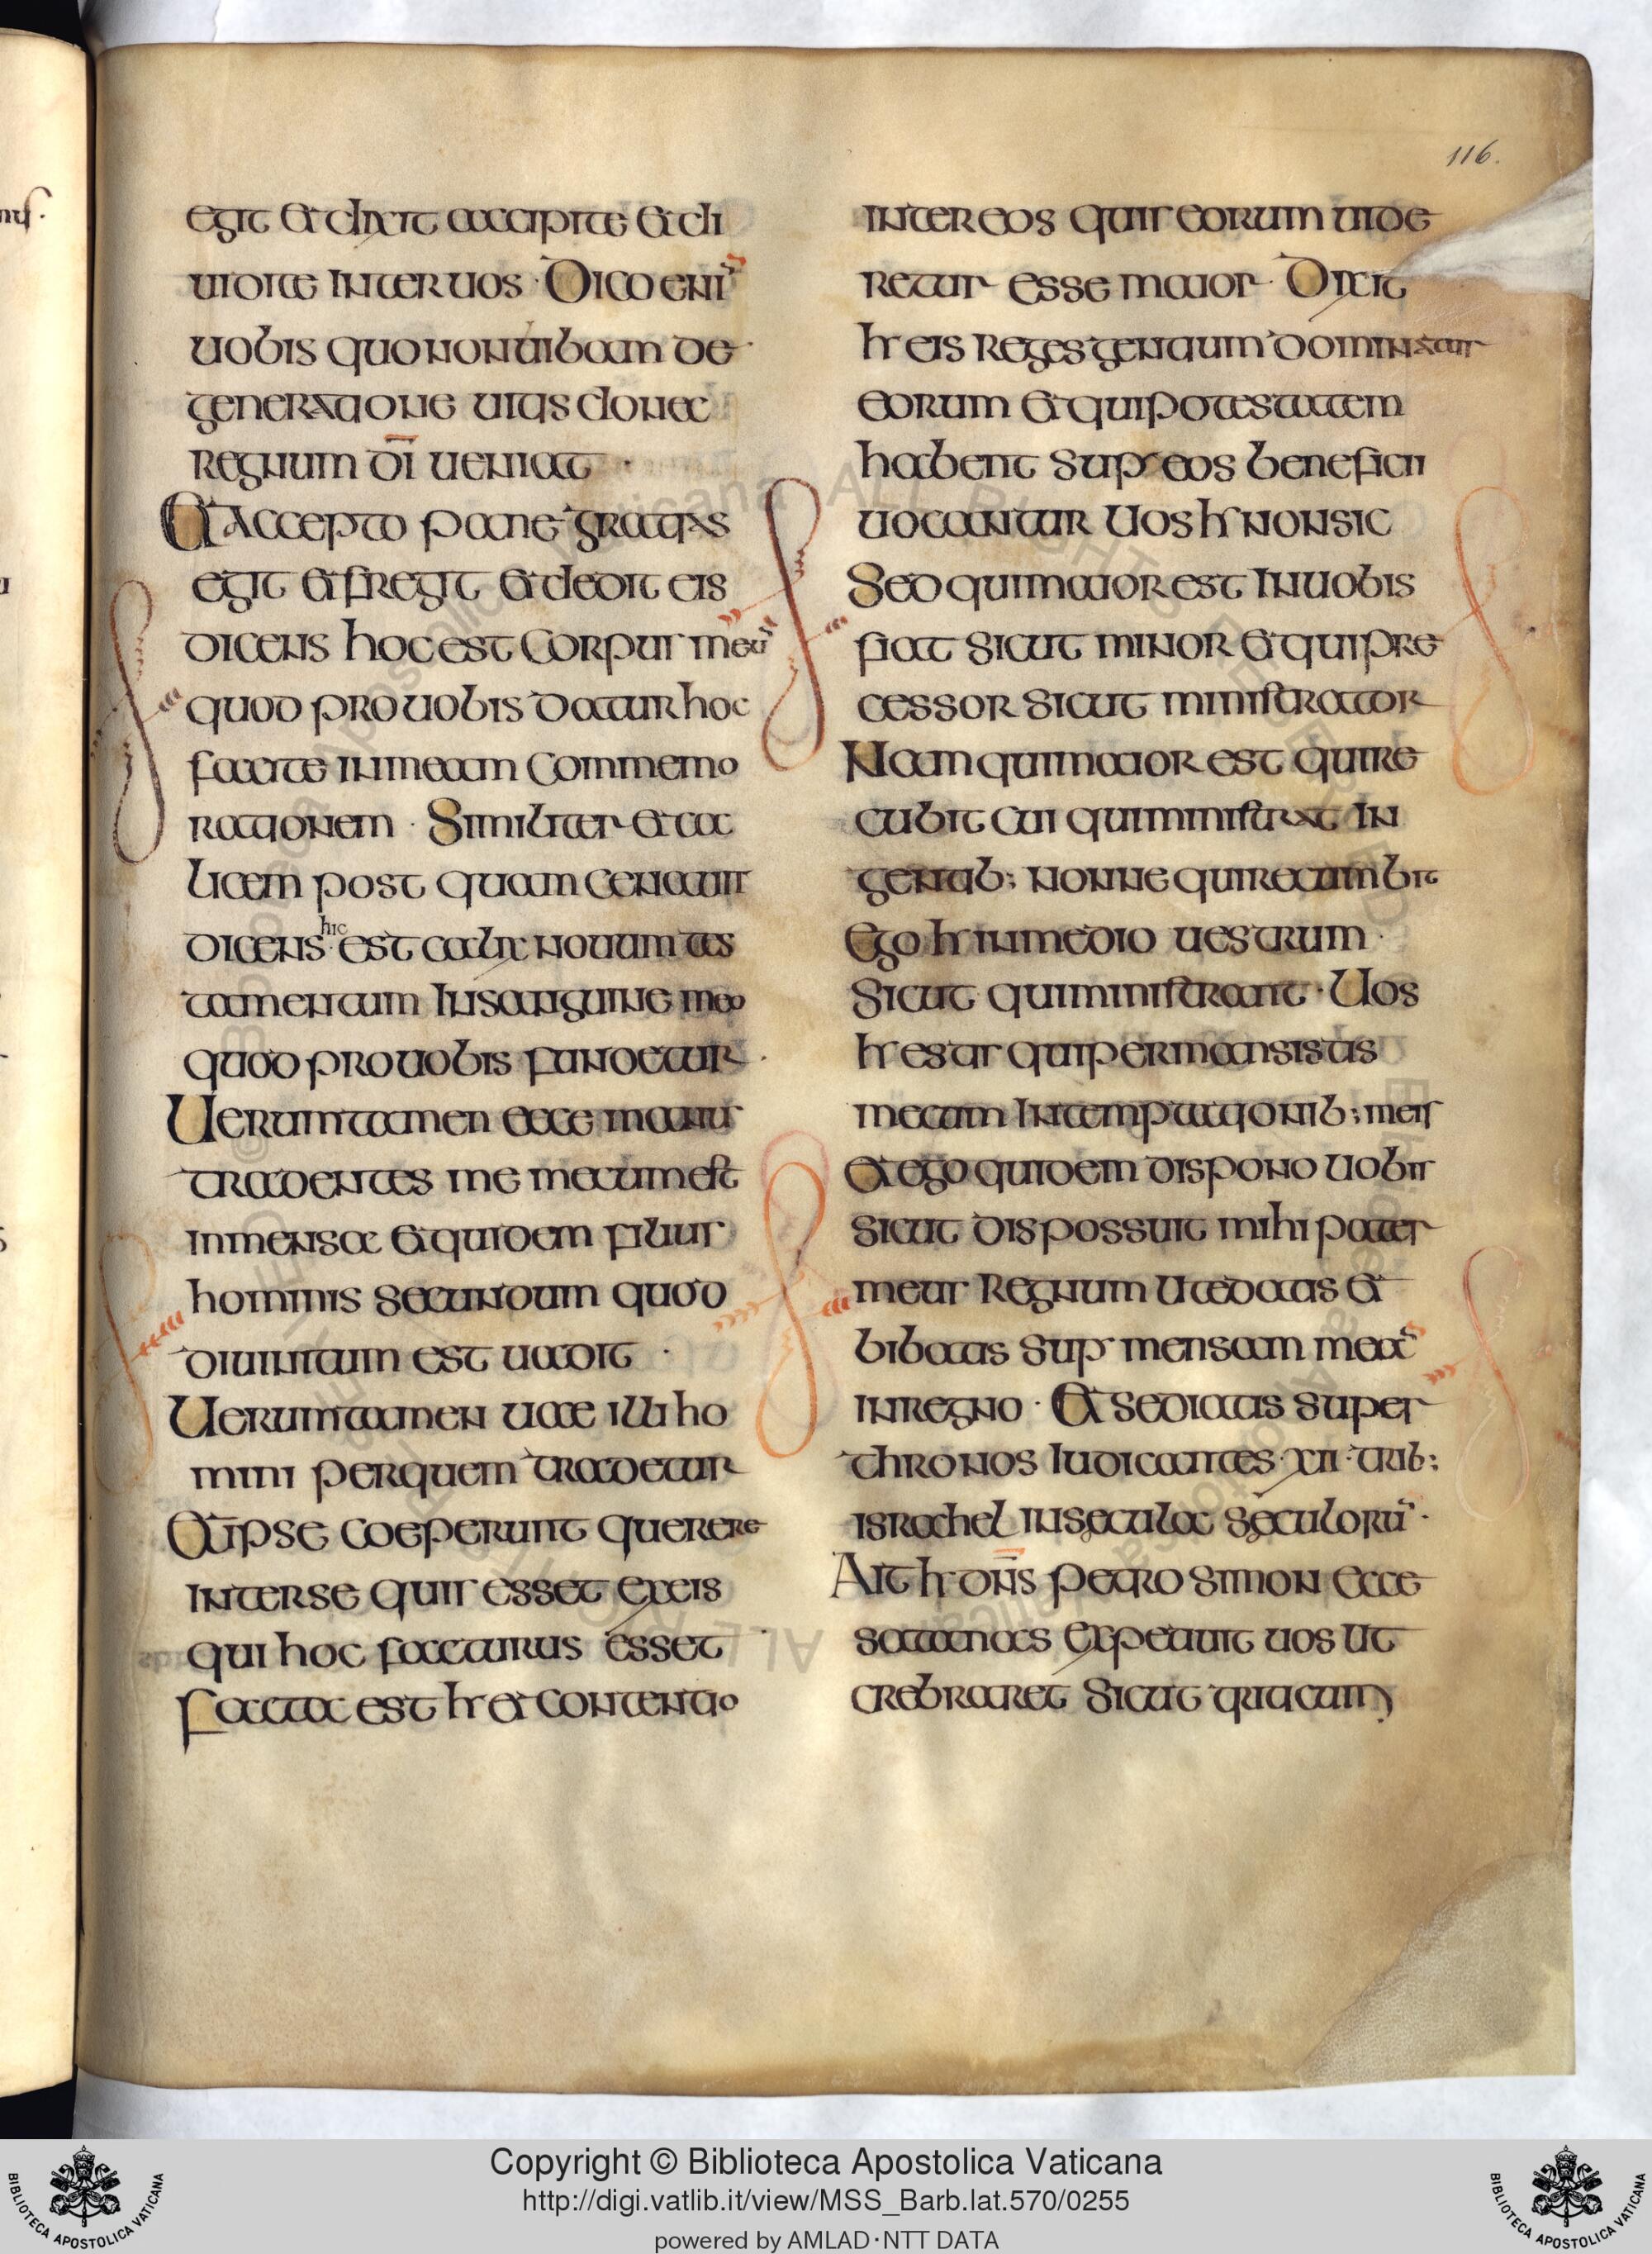 116.
egit et dixit accipite et di
uidite inter uos · Dico eni̅
uobis quo non uibam de
generatione uitis donec
regnum di̅ ueniat ·
Et accepto pane gratias
egit et fregit et dedit eis
dicens hoc est corpus meu̅
quod pro uobis datur hoc
facite in meam commemo
rationem · Similiter et ca
licem post quam cenauit
dicens · hic est calix nouum tes
tamentum in sanguine meo
quod pro uobis fundetur ·
Uerumtamen ecce manus
tradentes me mecum est
in mensa et quidem filius
hominis secundum quod
difinitum est uadit ·
Uerumtamen uae illi ho
mini per quem tradetur
Et ipse coeperunt querere
inter se quis esset ex eis
qui hoc facturus esset
Facta est hr et contentio
inter eos quis eorum uide
retur esse maior · Dixit
hr eis reges gentium dominatur
eorum et qui potestatem
habent sup eos benefici
uocantur uos hr non sic
Sed qui maior est in uobis
fiat sicut minor et qui pre
cessor sicut ministrator
Nam qui maior est qui re
cubit aut qui ministrat in
gentib; nonne qui recumbit
Ego hr in medio uestrum ·
Sicut qui ministrant · Uos
hr estis qui permansistis
mecum in temptationib; meis
Et ego quidem dispono uobis
sicut dispossuit mihi pater
meus regnum ut edatis et
bibatis sup mensam mea̅
in regno · Et sediatis super
thronos iudicantes · xii · trib;
israhel in saecula saeculoru̅ ·
Ait hr dn̅s petro simon ecce
satanas expetiuit uos ut
crebraret sicut triticum
Copyright © Biblioteca Apostolica Vaticana
http://digi.vatlib.it/view/MSS_Barb.lat.570/0255
powered by AMLAD·NTT DATA
BIBLIOTECA APOSTOLICA VATICANA
BIBLIOTECA APOSTOLICA VATICANA